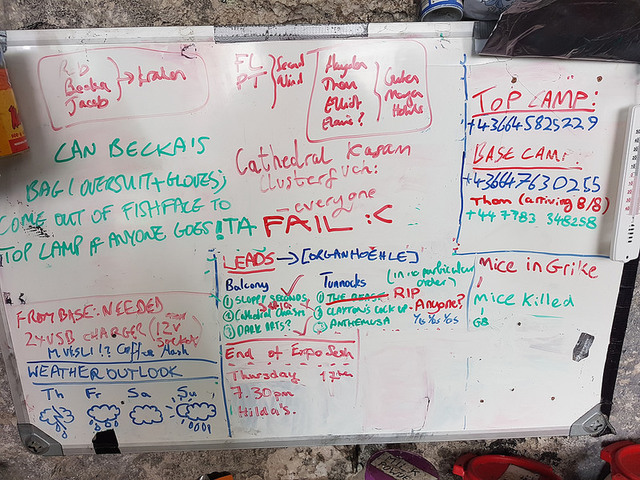 Becka
Jacob
→ Kraken
FL
PT
Second
Wind
Hayden
Thom
Elliott
Elaine?
TOP CAMP:
+43664 5825229
BASE CAMP:
+43664 7630255
Thom (arriving 8/8)
+44 7783 348258
CAN BECKA'S
BAG (OVERSUIT+GLOVES)
COME OUT OF FISHFACE TO
TOP CAMP IF ANYONE GOES! TA
Cathedral Kazam
clusterfuck:
- everyone
FAIL :<
LEADS → [ORGANHOEHLE]
Balcony
① SLOPPY SECONDS
② Cathedral Chasms
③ DARK ARTS?
Tunnocks
(in no particular
order)
① THE BEAST RIP
② CLAYTON'S COCK UP - Anyone?
Yes Yes Yes
③ ANTHEMUSA
Mice in Grike
Mice Killed
GB
FROM BASE: NEEDED
2x USB CHARGER (12V
MUESLI!? Coffee Hash
WEATHER OUTLOOK
Th Fr Sa Su
End of Expo Sesh
Thursday 17th
7.30pm
Hilda's.